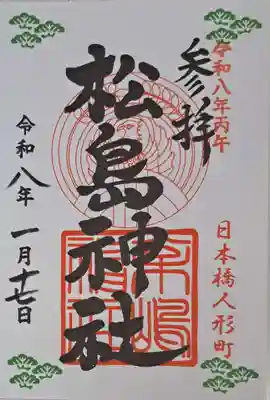 令和八年丙午
日本橋人形町
参拝
松島神社
令和八年
一月十七日